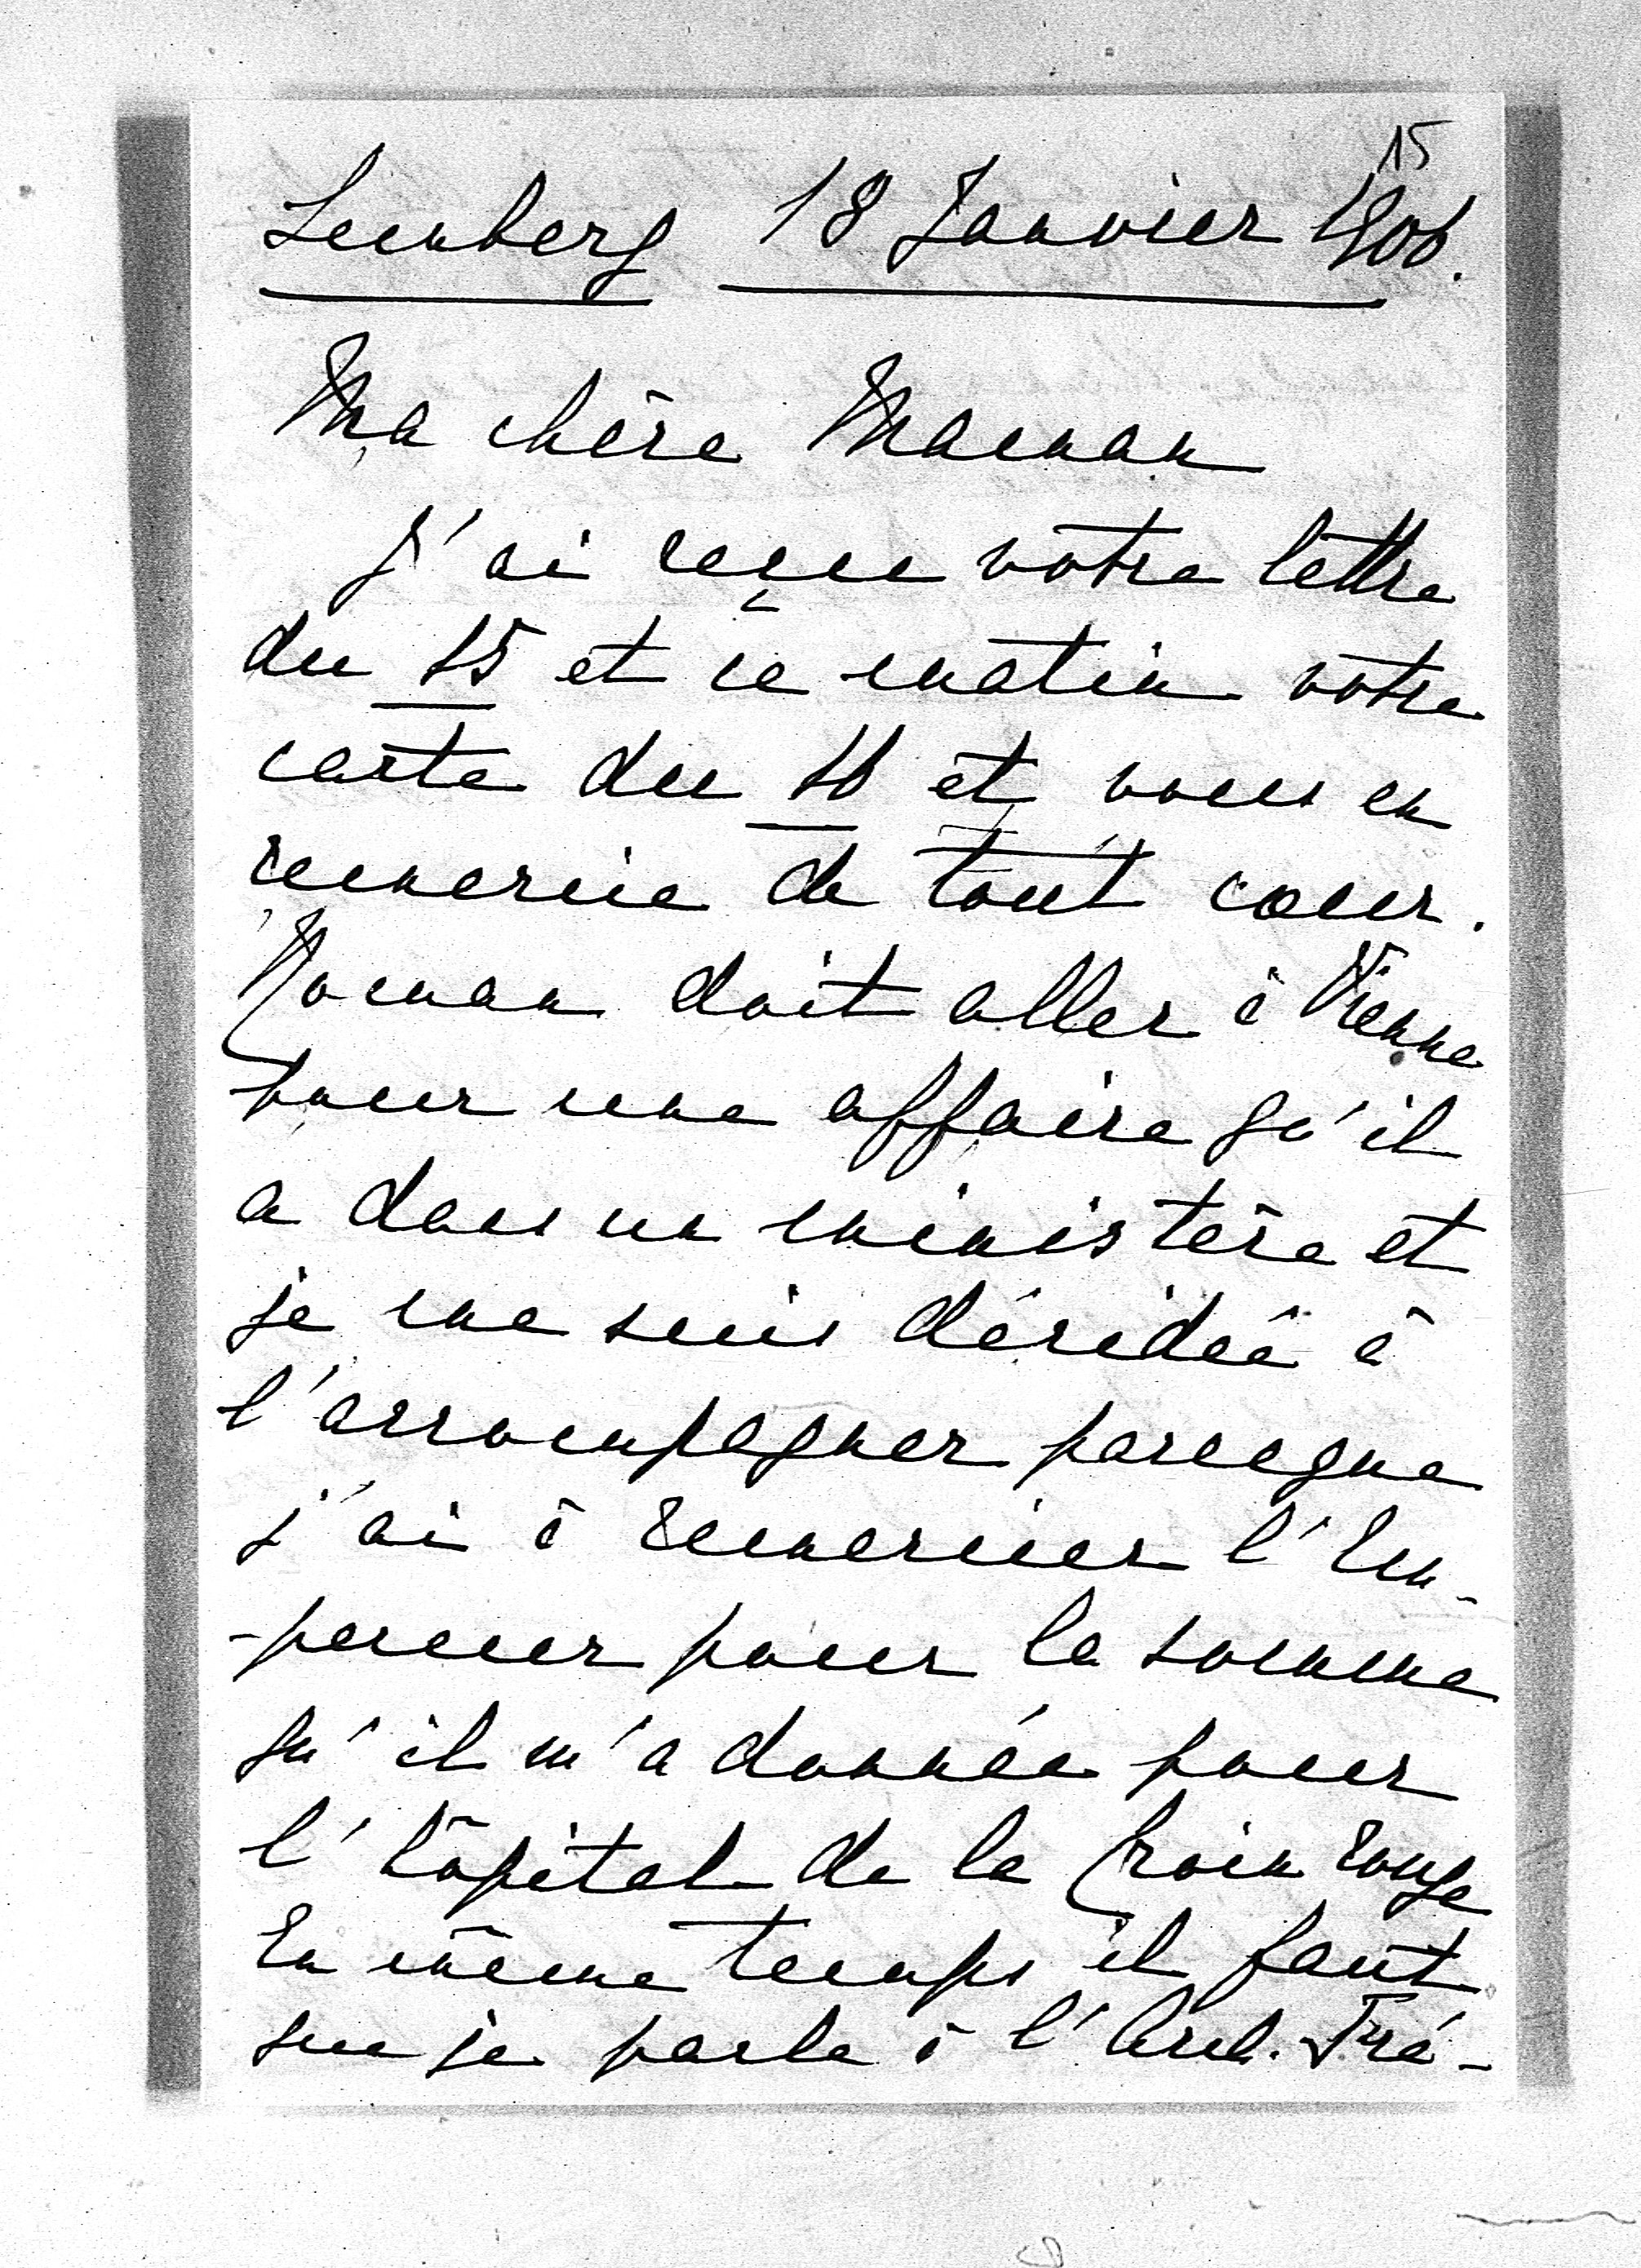 15
Lemberg 18 Janvier 1906.
Ma chère Maman
J'ai reçue votre lettre
du 15 et ce matin votre
carte du 16 et vous en
remercie de tout cœur.
Roman doit aller à Vienne
pour une affaire qu'il
a dans un ministère et
je me suis décidée à
l'accompagner parceque
j'ai à remercier l'Em-
-pereur pour la somme
qu'il m'a donnée pour
l'hôpital de la Croix rouge
En même temps il faut
que je parle à l'Arch. Fré-